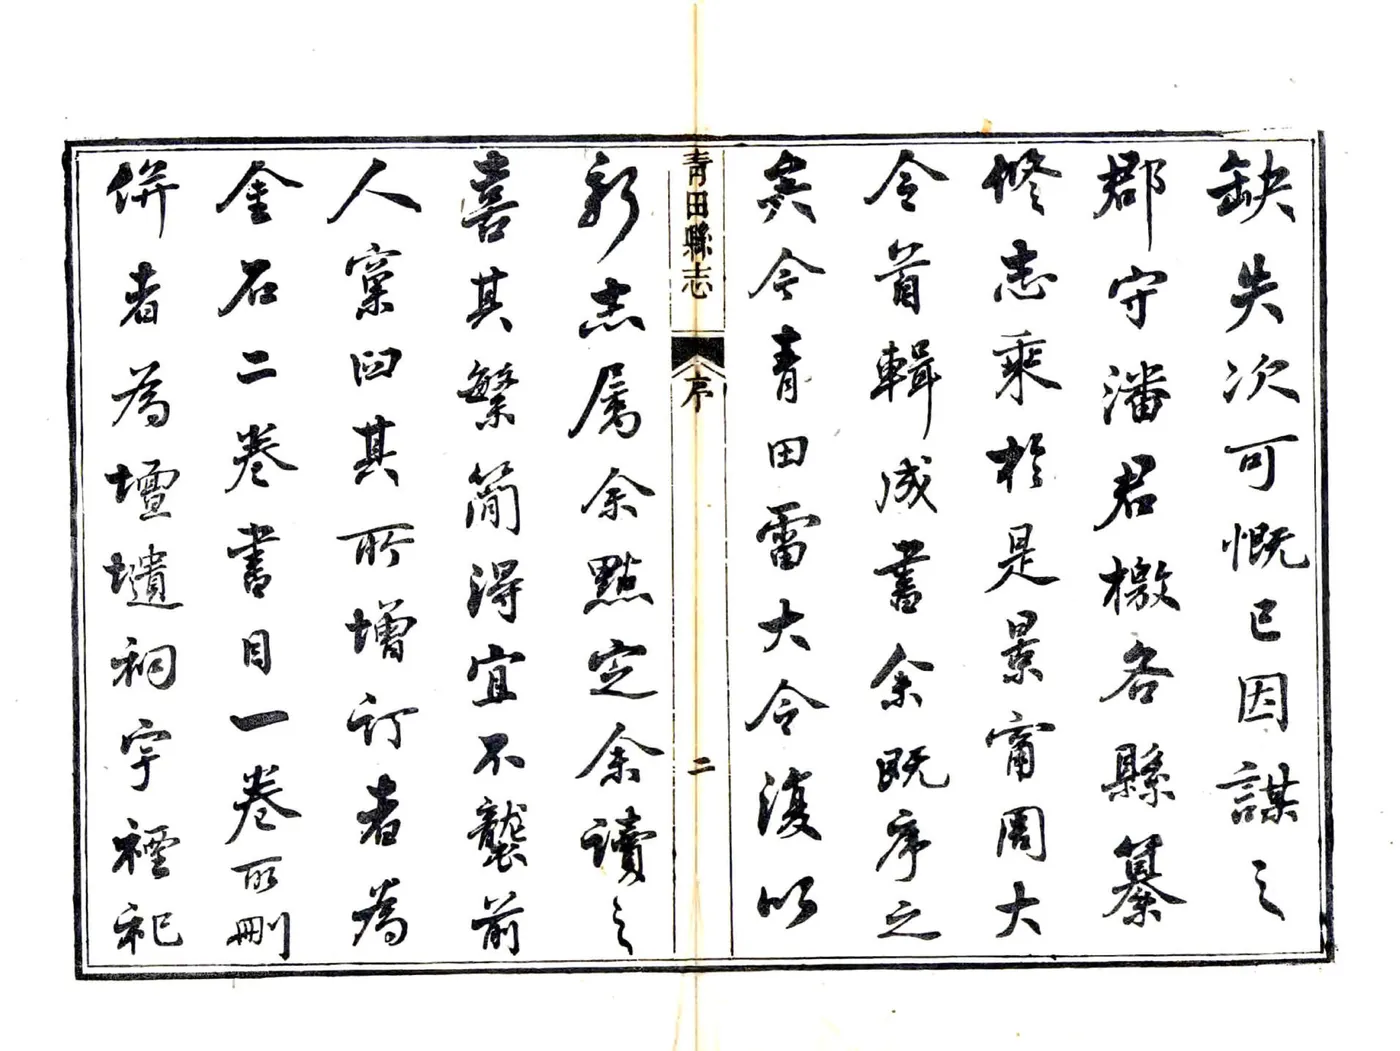 缺失次可慨已因謀之
郡守潘君檄各縣纂
修志乘於是景甯周大
令首輯成書余既序之
矣今青田雷大令復以
青田縣志
序
二
新志属余點定余讀之
喜其繁簡得宜不襲前
人窠臼其所增訂者為
金石二卷書目一卷所刪
併者為壇壝祠宇禋祀